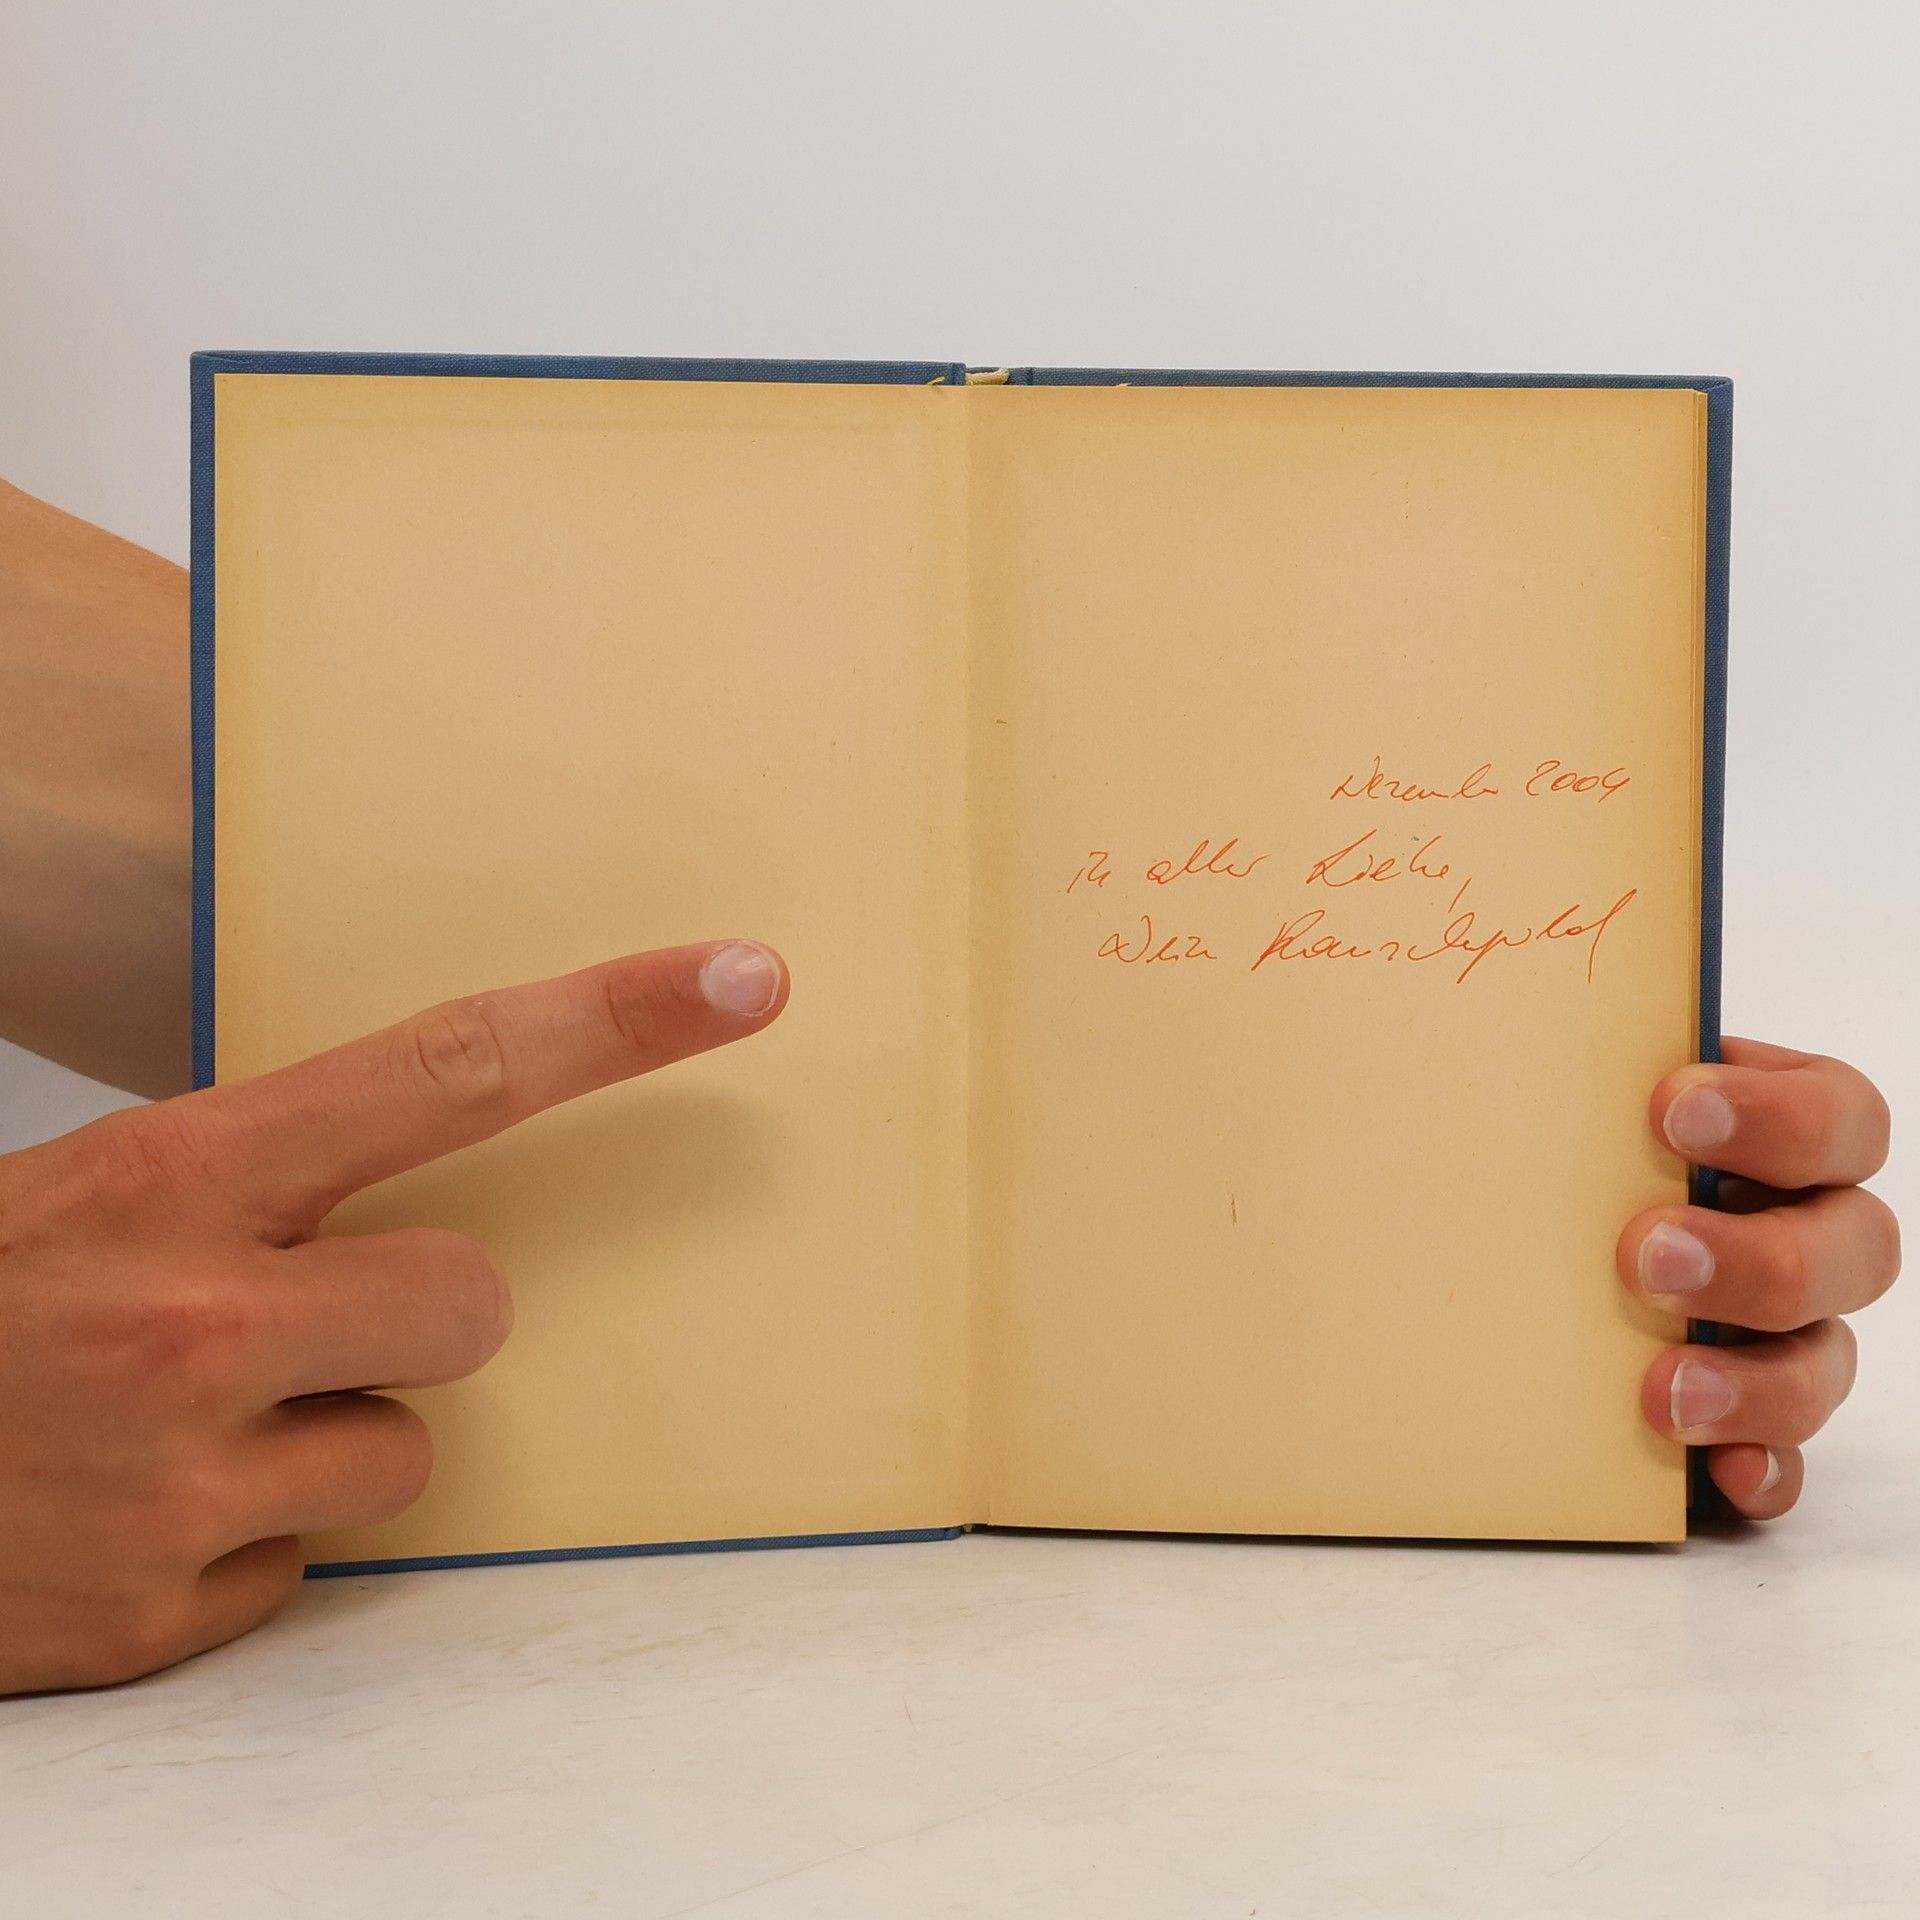 Dezember 2004
in aller Liebe,
Dein Rauschgold